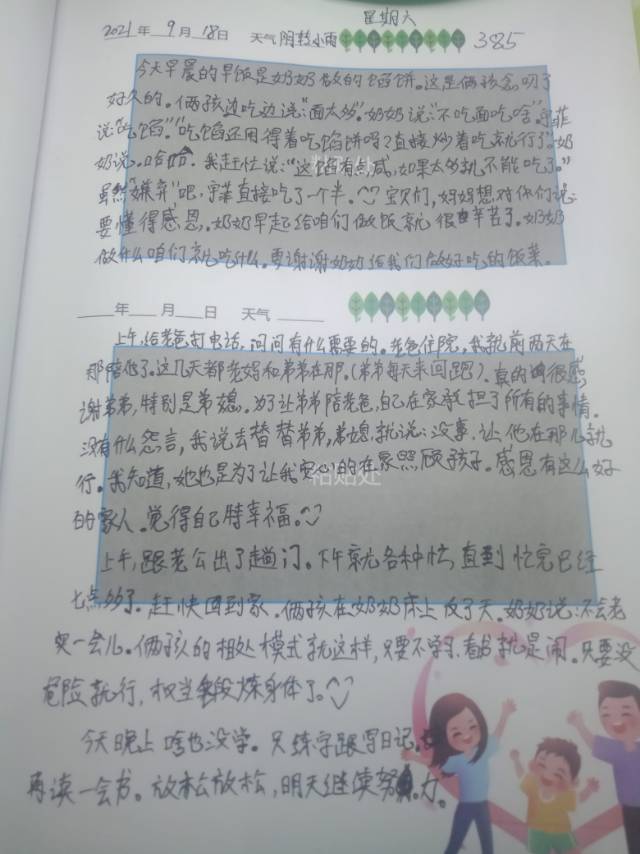 星期六
2021年9月18日 天气 阴转小雨 385
今天早晨的早饭是奶奶做的馅饼。这是俩孩念叨了
好久的。俩孩边吃边说:"面太多"。奶奶说:"不吃面吃啥"。宇菲
说:"吃馅。""吃馅还用得着吃馅饼吗?直接炒着吃就行了"奶
奶说。哈哈。我赶忙说:"这馅有点咸,如果太多就不能吃了。"
虽然"嫌弃"吧,宇菲直接吃了一个半。宝贝们,妈妈想对你们说:
要懂得感恩。奶奶早起给咱们做饭就很辛苦了。奶奶
做什么咱们就吃什么。要谢谢奶奶给我们做好吃的饭菜。
年 月 日 天气
上午,给老爸打电话,问问有什么需要的。老爸住院,我就前两天在
那陪他了。这几天都老妈和弟弟在那。(弟弟每天来回跑)。真的很感
谢弟弟,特别是弟媳。为了让弟弟陪老爸,自己在家承担了所有的事情。
没有什么怨言,我说去替替弟弟,弟媳就说:没事,让他在那儿就
行。我知道,她也是为了让我安心的在家照顾孩子。感恩有这么好
粘贴处
的家人。觉得自己特幸福。
上午,跟老公出了趟门。下午就各种忙,直到忙完已经
七点多了。赶快回到家。俩孩在奶奶床上反了天。奶奶说:不会老
实一会儿。俩孩的相处模式就这样,只要不学习、看书就是闹。只要没
危险就行,权当锻炼身体了。
今天晚上啥也没学。只练字跟写日记。
再读一会书。放松放松,明天继续努力。